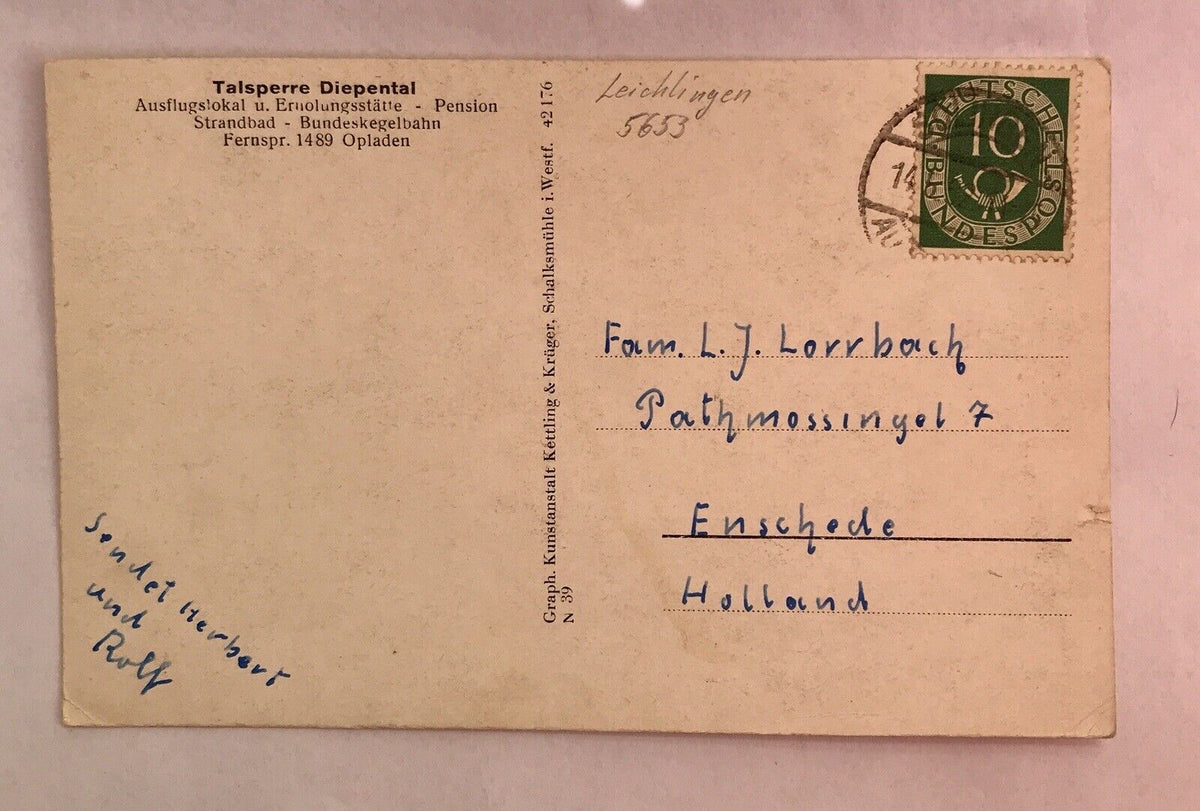 Talsperre Diepental
Ausflugslokal u. Erholungsstätte - Pension
Strandbad - Bundeskegelbahn
Fernspr. 1489 Opladen
Sendet Herbert
und
Rolf
Graph. Kunstanstalt Kettling & Krüger, Schalksmühle i. Westf. 42176
N 39
Leichlingen
5653
DEUTSCHE
10
BUNDESPOST
14
Fam. L. J. Lorrbach
Pathmossingel 7
Enschede
Holland